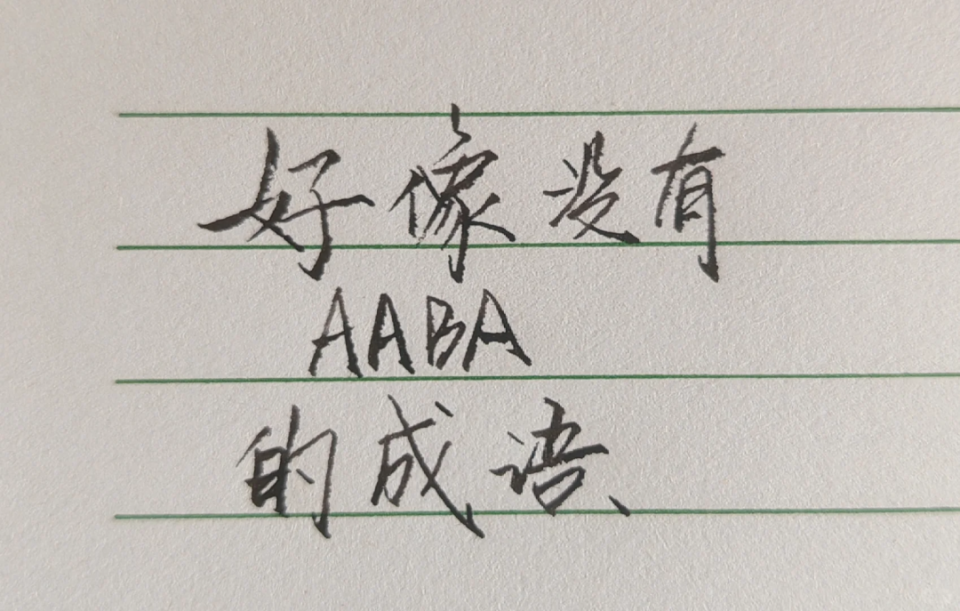 好像没有
AABA
的成语、